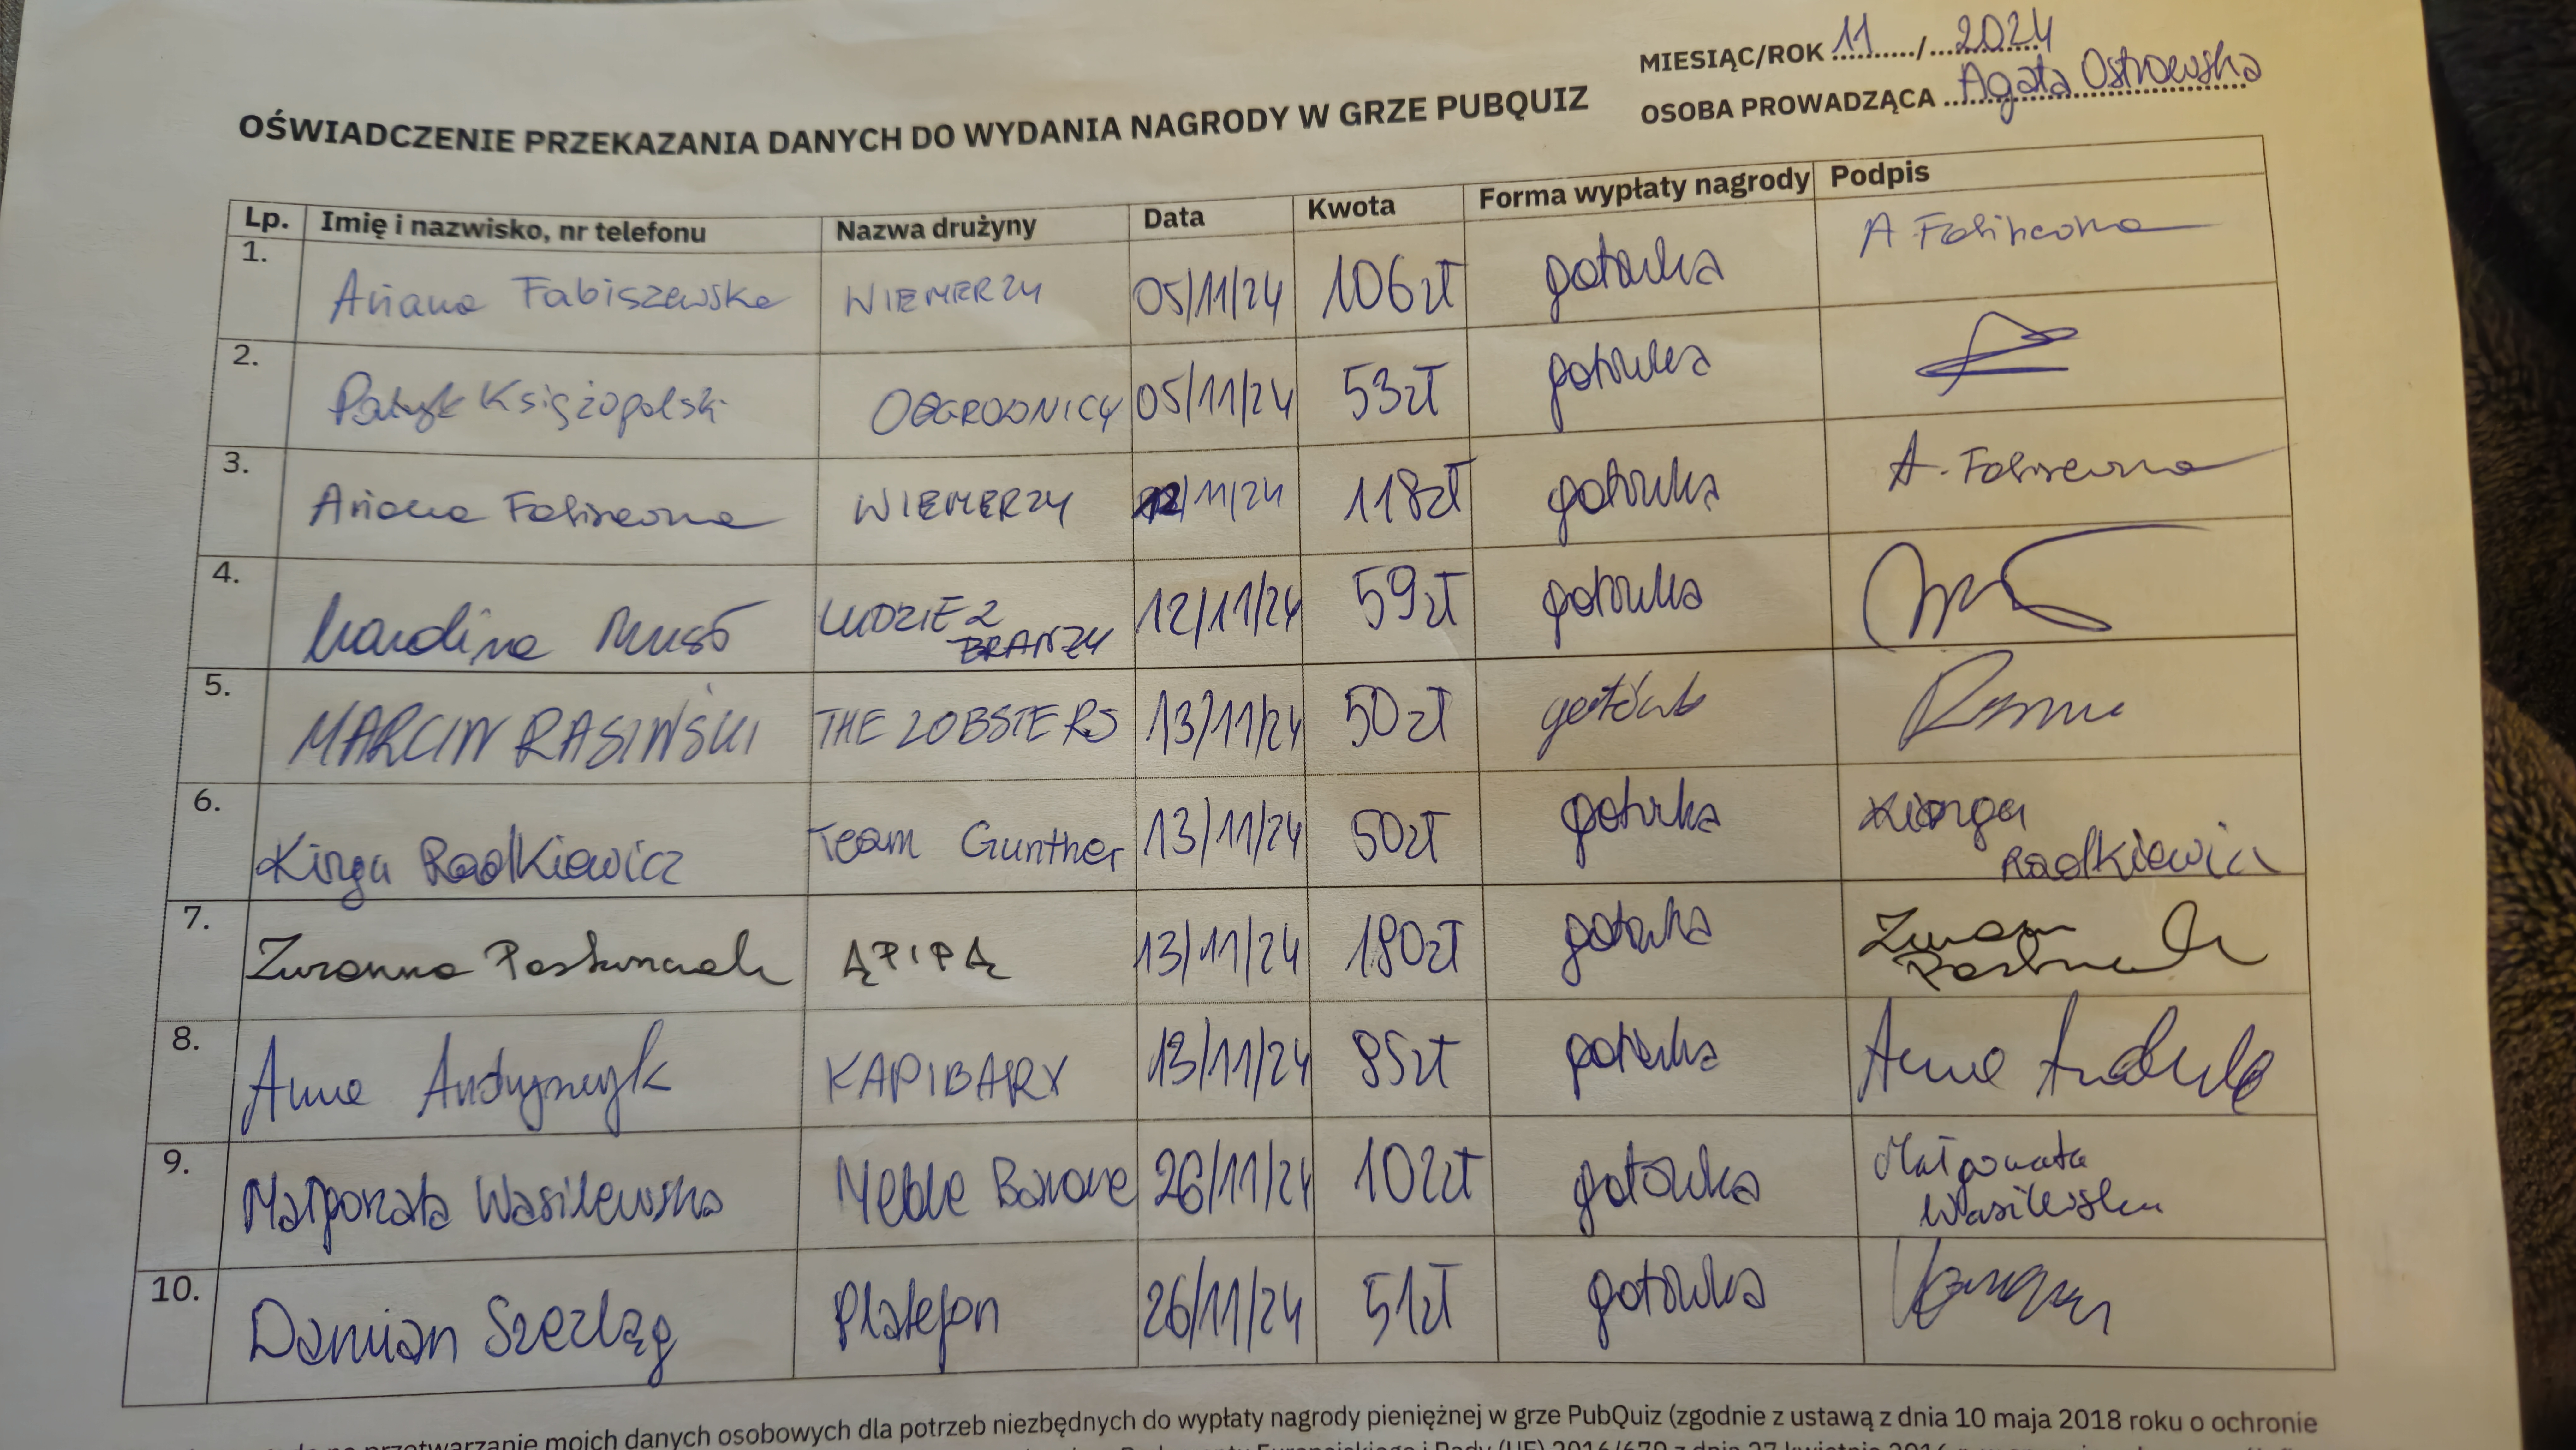 MIESIĄC/ROK 11 / 2024
OSOBA PROWADZĄCA Agata Ostrowska
OŚWIADCZENIE PRZEKAZANIA DANYCH DO WYDANIA NAGRODY W GRZE PUBQUIZ
Lp. Imię i nazwisko, nr telefonu Nazwa drużyny Data Kwota Forma wypłaty nagrody Podpis
1. Ariana Fabiszewska WIEMERZY 05/11/24 106zł gotówka A Fabiszewska
2. Patryk Księżopolski OGRODNICY 05/11/24 53zł gotówka
3. Ariana Fabiszewska WIEMERZY 12/11/24 118zł gotówka A. Fabiszewska
4. Karolina LUDZIE Z BRANŻY 12/11/24 59zł gotówka
5. MARCIN RASIŃSKI THE LOBSTERS 13/11/24 50zł gotówka
6. Kinga Radkiewicz Team Gunther 13/11/24 50zł gotówka Kinga Radkiewicz
7. Zuzanna ĄPIPĄ 13/11/24 180zł gotówka
8. Anna KAPIBARY 13/11/24 85zł gotówka Anna
9. Małgorzata Wasilewska Meble Barowe 26/11/24 102zł gotówka Małgorzata Wasilewska
10. Damian Szezląg Platefon 26/11/24 51zł gotówka
przetwarzanie moich danych osobowych dla potrzeb niezbędnych do wypłaty nagrody pieniężnej w grze PubQuiz (zgodnie z ustawą z dnia 10 maja 2018 roku o ochronie